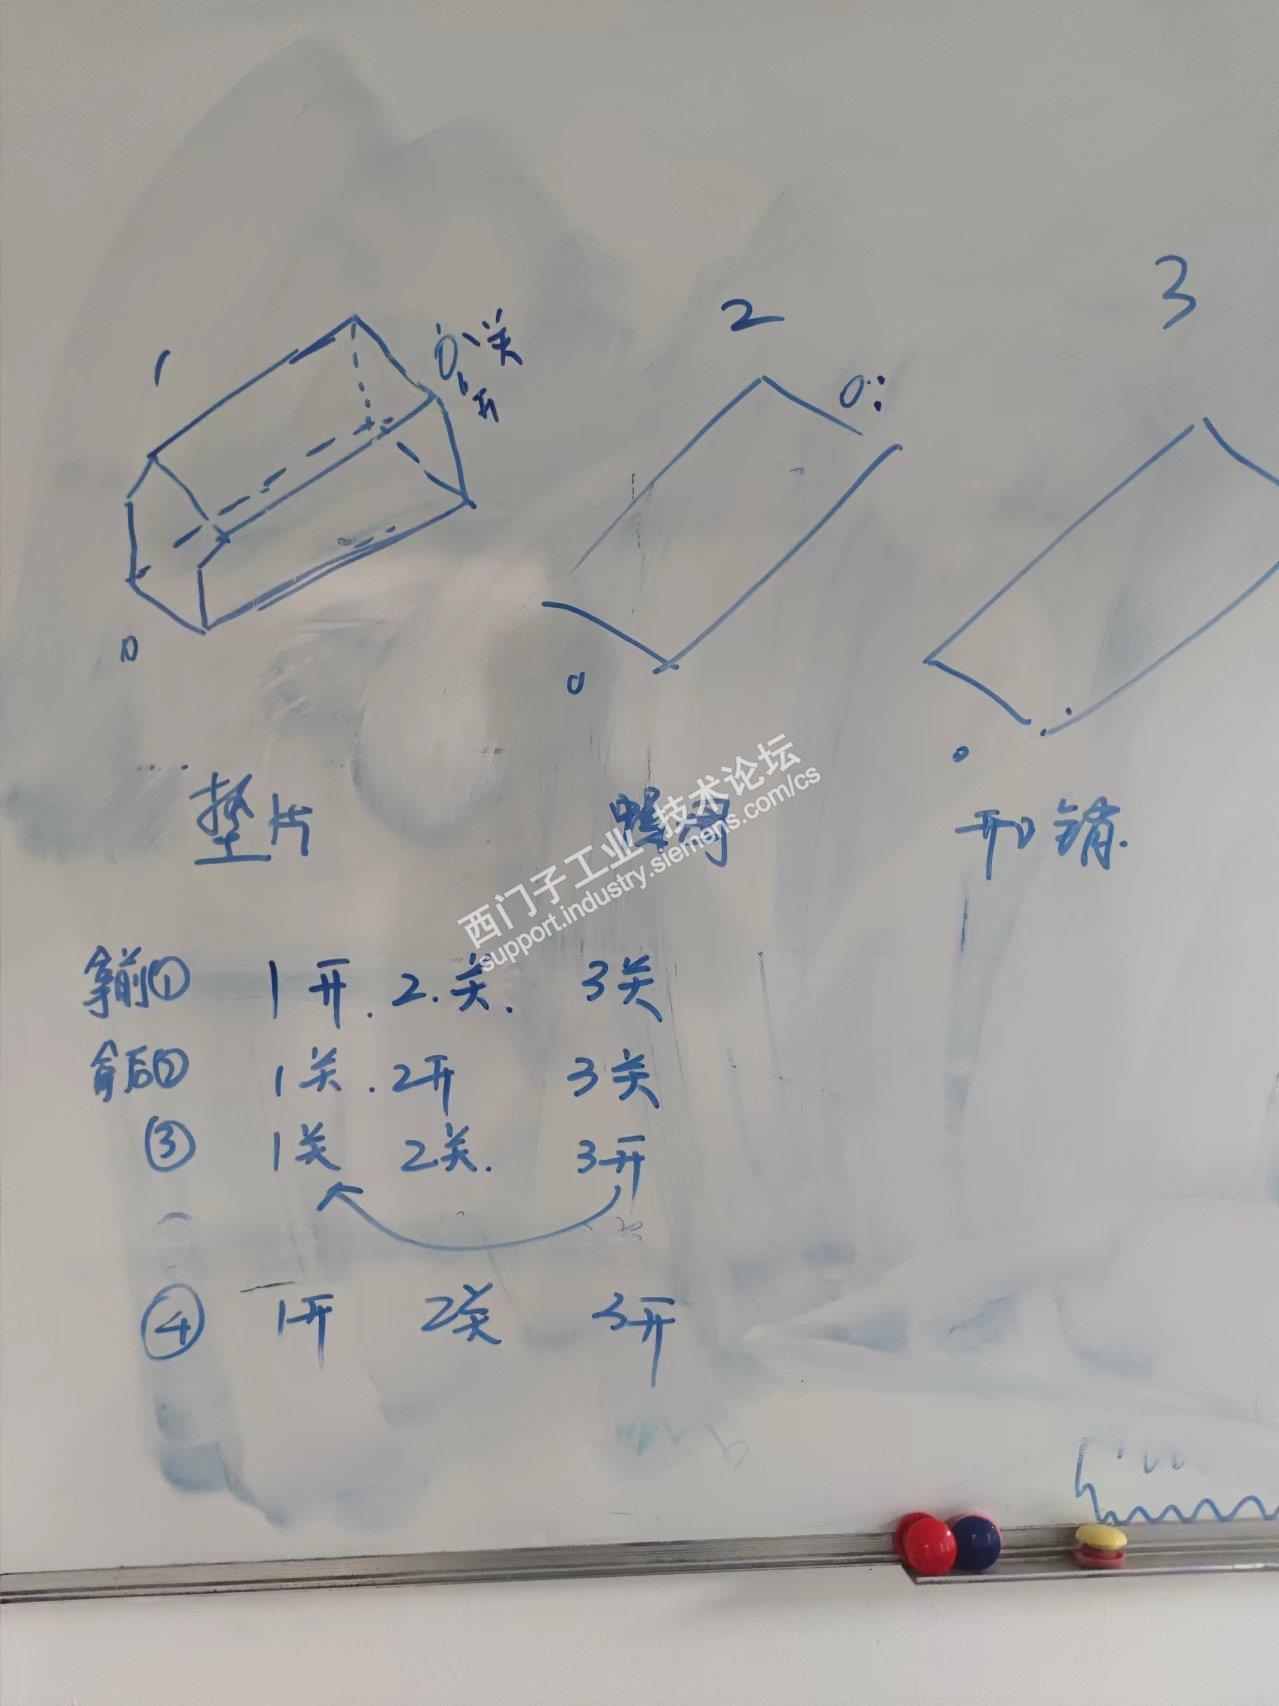 1
2
3
关
开
垫片
螺母
开口销.
拿前① 1开. 2.关. 3关
拿后② 1关. 2开 3关
③ 1关 2关. 3开
④ 1开 2关 3开
西门子工业 技术论坛
support.industry.siemens.com/cs